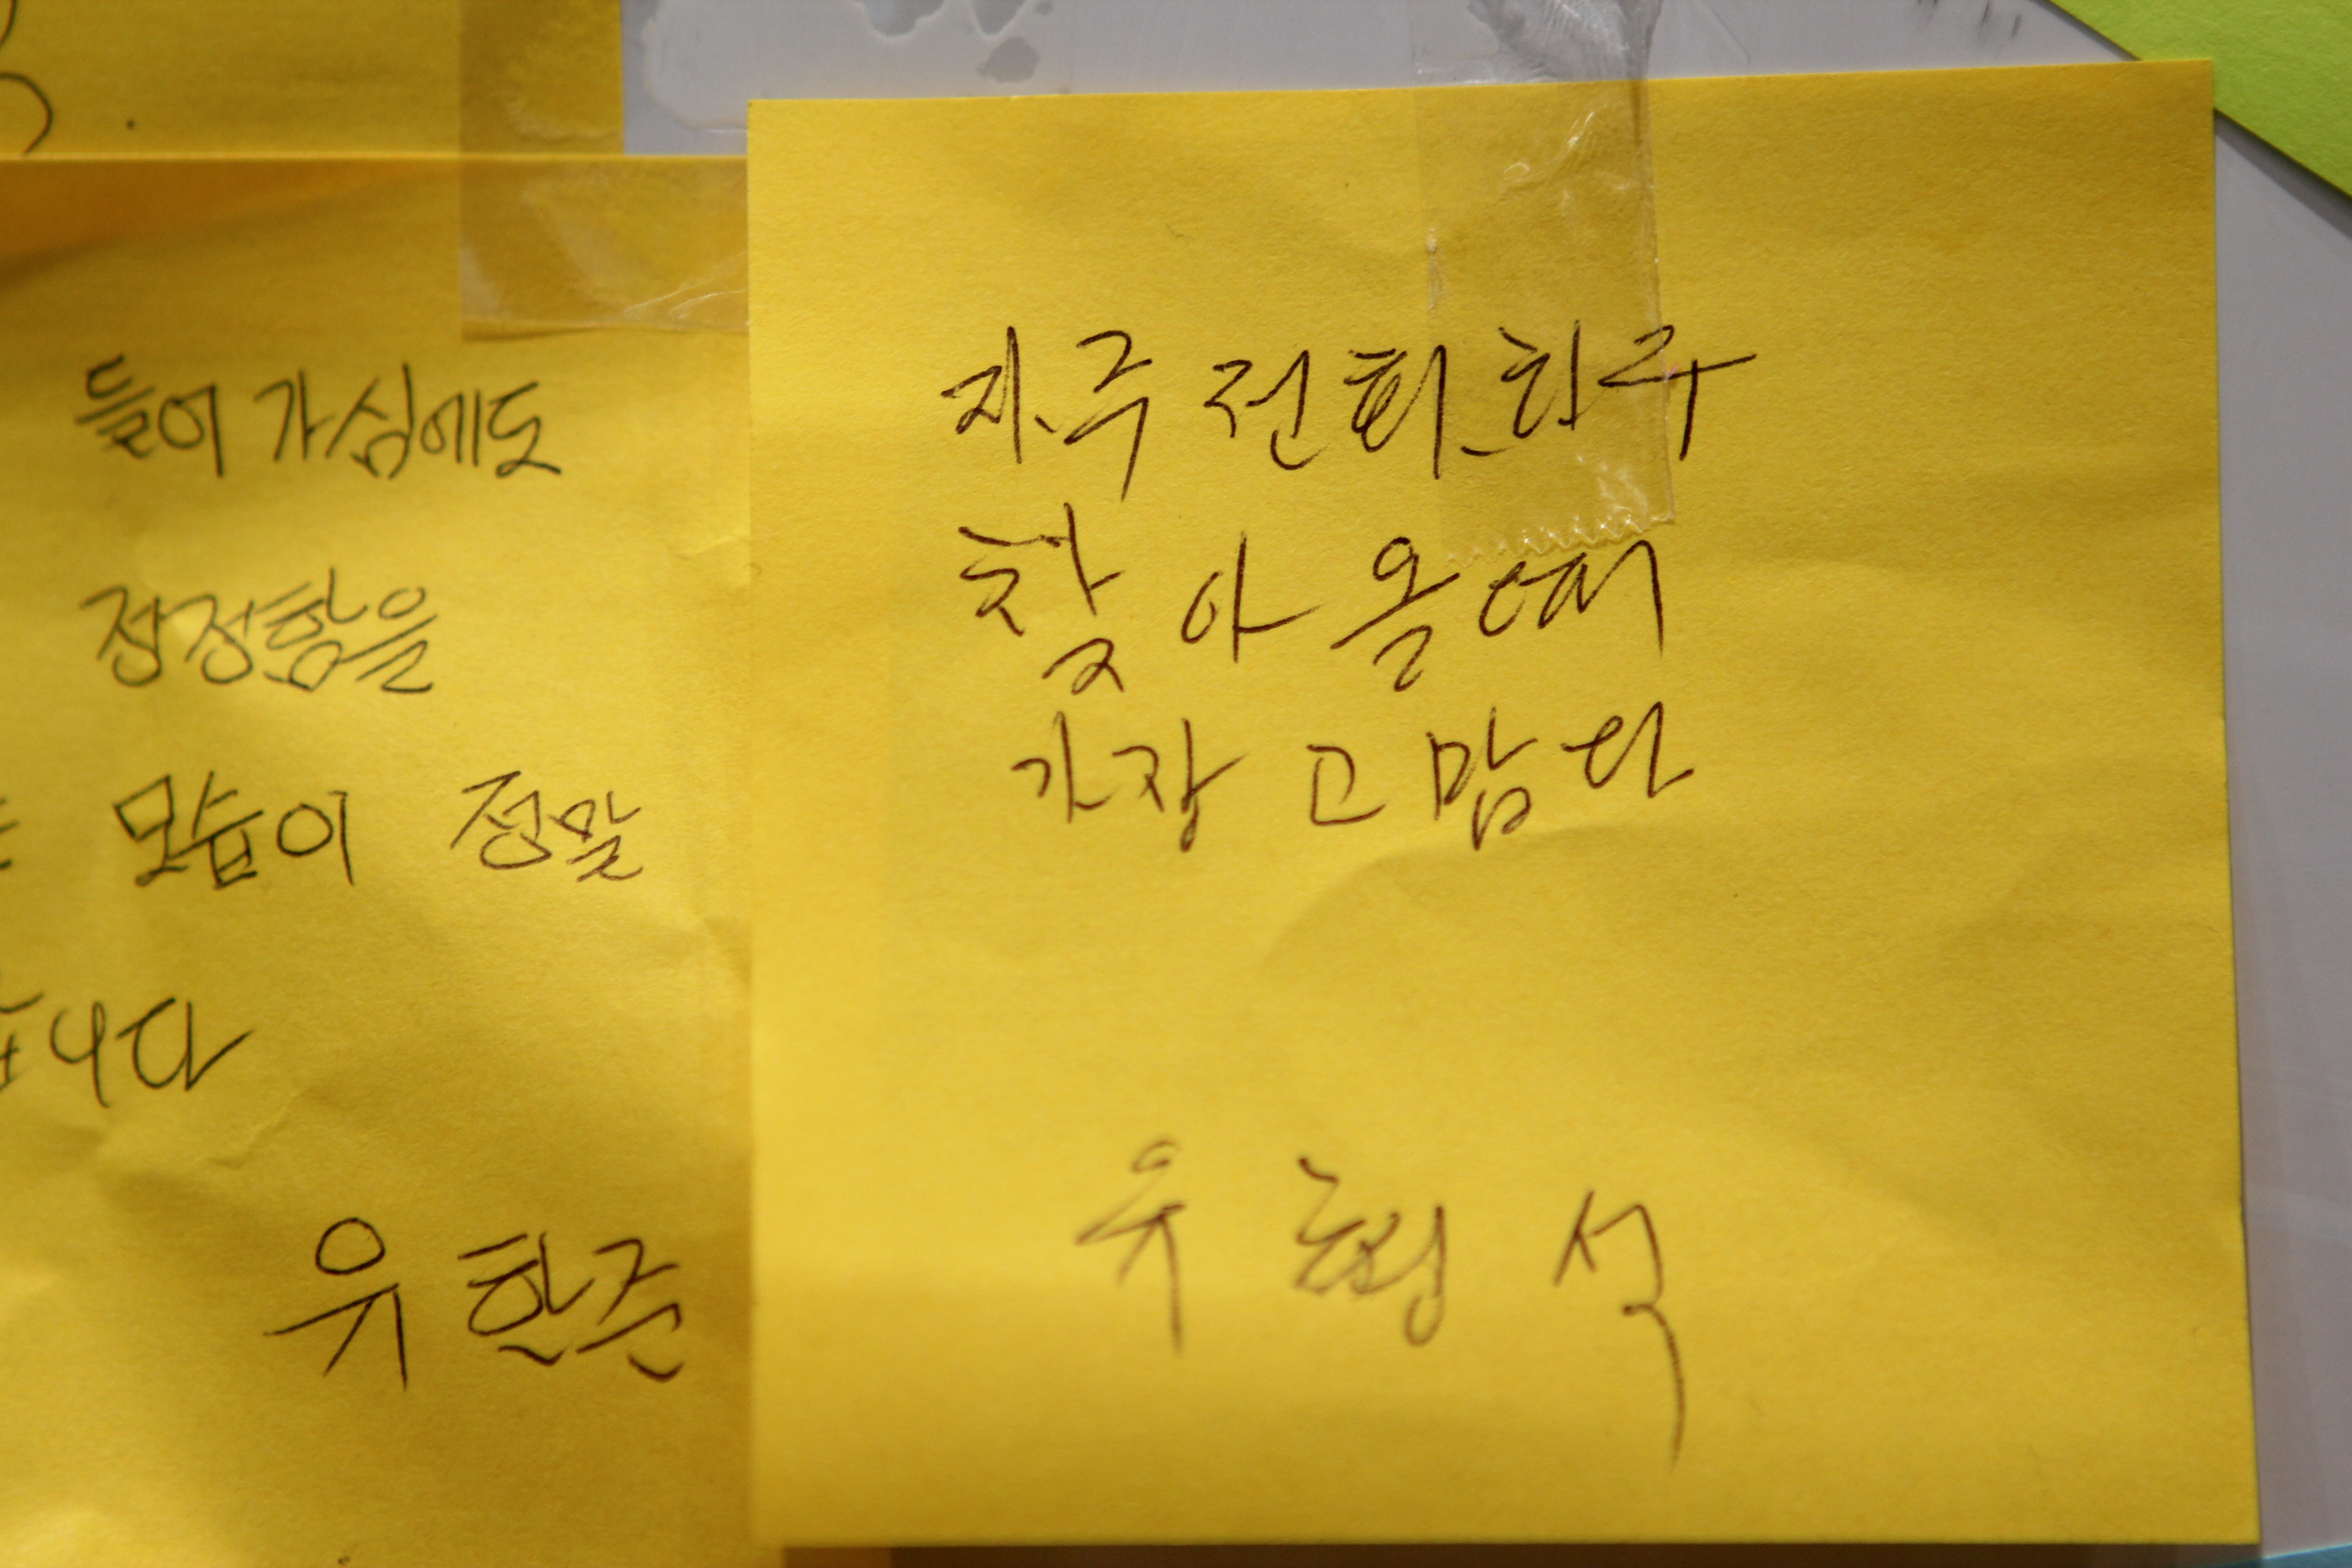 들어 가심에도
잠정함을
모습이 정말
습니다
유한준
자주 전화하구
찾아올때
가장 고맙다
우형석